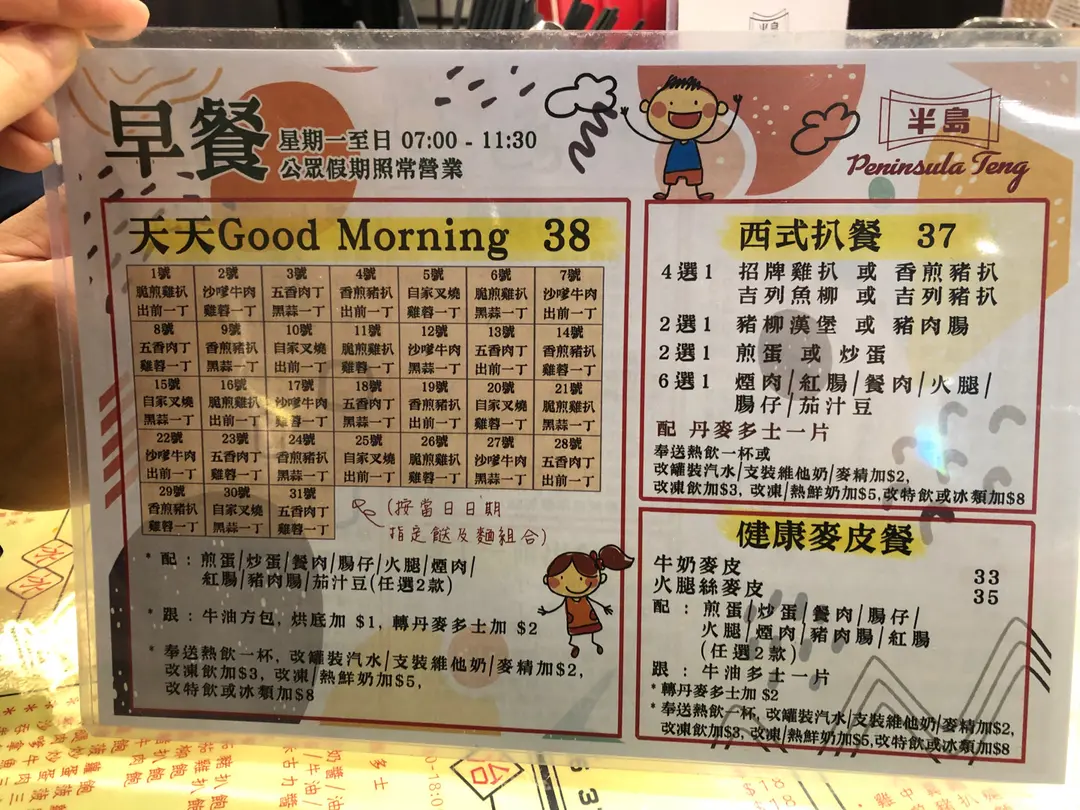 早餐
星期一至日 07:00 - 11:30
公眾假期照常營業
半島
Peninsula Teng
天天Good Morning 38
1號 2號 3號 4號 5號 6號 7號
脆煎雞扒 沙嗲牛肉 五香肉丁 香煎豬扒 自家叉燒 脆煎雞扒 沙嗲牛肉
出前一丁 雞蓉一丁 黑蒜一丁 出前一丁 雞蓉一丁 黑蒜一丁 出前一丁
8號 9號 10號 11號 12號 13號 14號
五香肉丁 香煎豬扒 自家叉燒 脆煎雞扒 沙嗲牛肉 五香肉丁 香煎豬扒
雞蓉一丁 黑蒜一丁 出前一丁 雞蓉一丁 黑蒜一丁 出前一丁 雞蓉一丁
15號 16號 17號 18號 19號 20號 21號
自家叉燒 脆煎雞扒 沙嗲牛肉 五香肉丁 香煎豬扒 自家叉燒 脆煎雞扒
黑蒜一丁 出前一丁 雞蓉一丁 黑蒜一丁 出前一丁 雞蓉一丁 黑蒜一丁
22號 23號 24號 25號 26號 27號 28號
沙嗲牛肉 五香肉丁 香煎豬扒 自家叉燒 脆煎雞扒 沙嗲牛肉 五香肉丁
出前一丁 雞蓉一丁 黑蒜一丁 出前一丁 雞蓉一丁 黑蒜一丁 出前一丁
29號 30號 31號
香煎豬扒 自家叉燒 五香肉丁
雞蓉一丁 黑蒜一丁 雞蓉一丁
(按當日日期
指定餸及麵組合)
* 配 : 煎蛋/炒蛋/餐肉/腸仔/火腿/煙肉/
紅腸/豬肉腸/茄汁豆(任選2款)
* 跟 : 牛油方包, 烘底加 $1, 轉丹麥多士加 $2
* 奉送熱飲一杯, 改罐裝汽水/支裝維他奶/麥精加$2,
改凍飲加$3, 改凍/熱鮮奶加$5,
改特飲或冰類加$8
西式扒餐 37
4選1 招牌雞扒 或 香煎豬扒
吉列魚柳 或 吉列豬扒
2選1 豬柳漢堡 或 豬肉腸
2選1 煎蛋 或 炒蛋
6選1 煙肉/紅腸/餐肉/火腿/
腸仔/茄汁豆
配 丹麥多士一片
奉送熱飲一杯或
改罐裝汽水/支裝維他奶/麥精加$2,
改凍飲加$3, 改凍/熱鮮奶加$5,改特飲或冰類加$8
健康麥皮餐
牛奶麥皮 33
火腿絲麥皮 35
配 : 煎蛋/炒蛋/餐肉/腸仔/
火腿/煙肉/豬肉腸/紅腸
(任選2款)
跟 : 牛油多士一片
* 轉丹麥多士加 $2
* 奉送熱飲一杯, 改罐裝汽水/支裝維他奶/麥精加$2,
改凍飲加$3, 改凍/熱鮮奶加$5,改特飲或冰類加$8